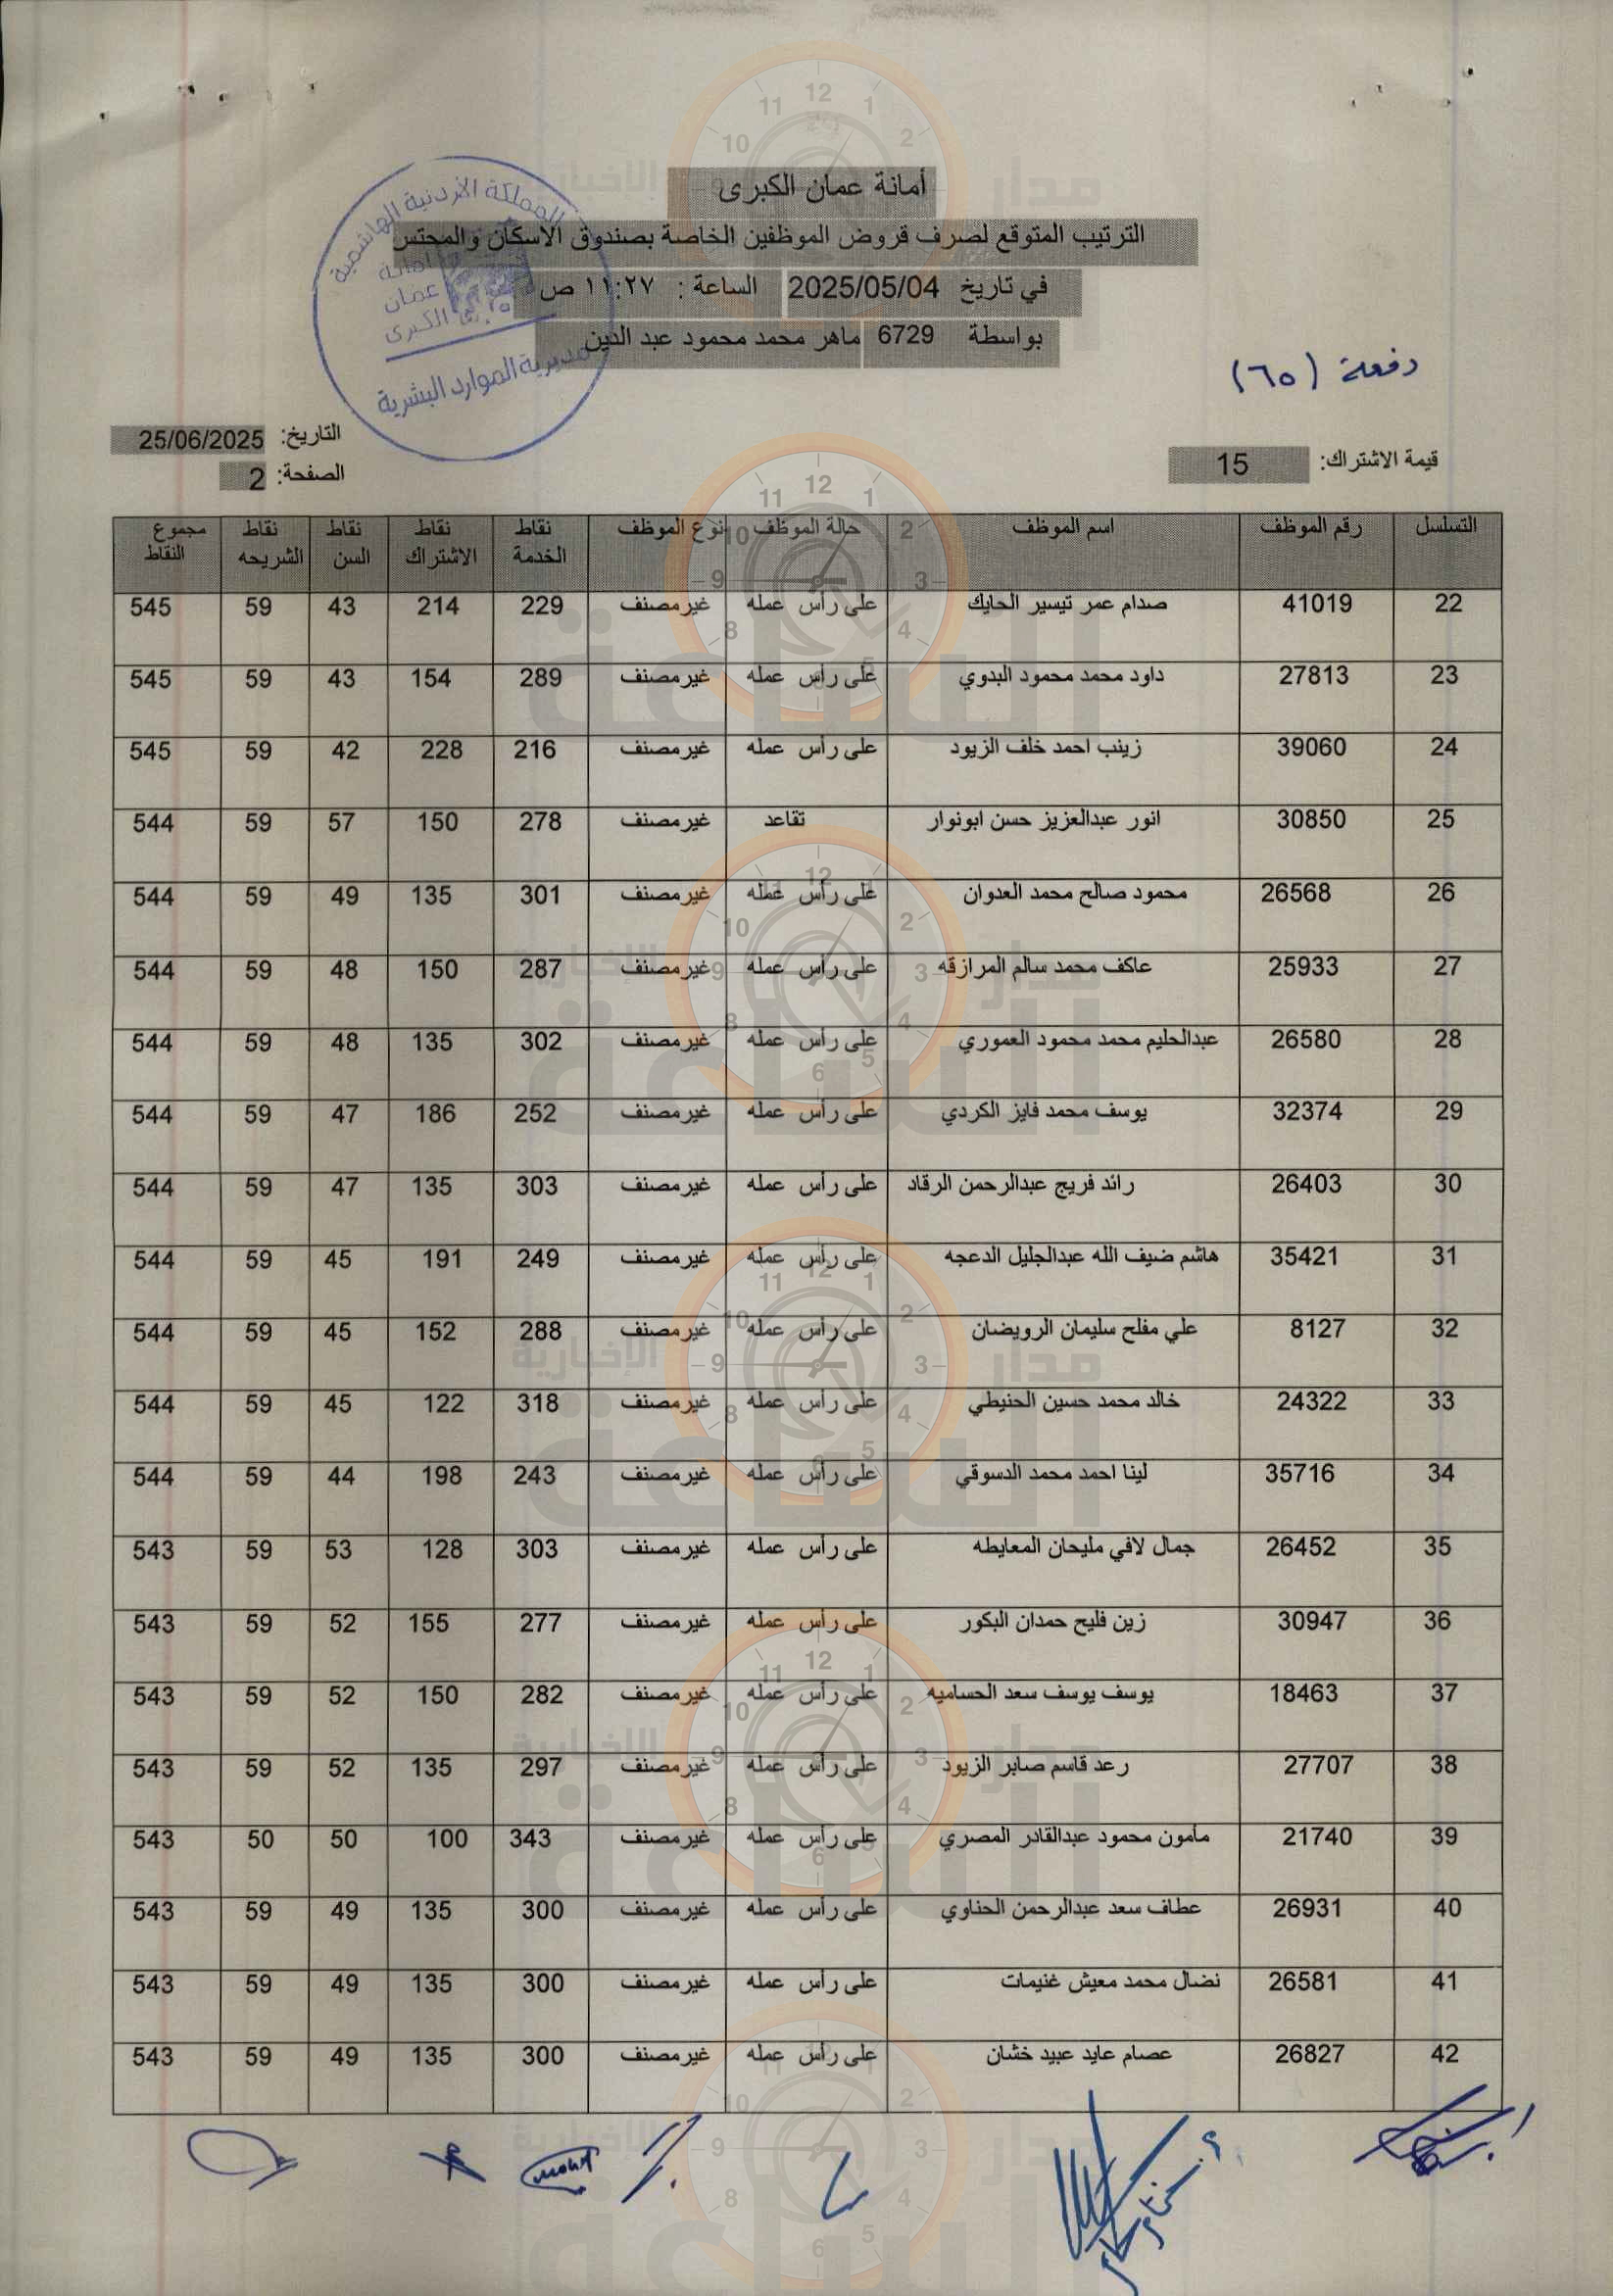 أمانة عمان الكبرى
الترتيب المتوقع لصرف قروض الموظفين الخاصة بصندوق الاسكان والمحتس
في تاريخ 2025/05/04 الساعة : ١١:٢٧ ص
بواسطة 6729 ماهر محمد محمود عبد الدين
المملكة الأردنية الهاشمية
امانة
عمان
الكبرى
مديرية الموارد البشرية
دفعة (٦٥)
التاريخ: 25/06/2025
الصفحة: 2
قيمة الاشتراك: 15
التسلسل رقم الموظف اسم الموظف حالة الموظف نوع الموظف نقاط الخدمة نقاط الاشتراك نقاط السن نقاط الشريحه مجموع النقاط
22 41019 صدام عمر تيسير الحايك على رأس عمله غير مصنف 229 214 43 59 545
23 27813 داود محمد محمود البدوي على رأس عمله غير مصنف 289 154 43 59 545
24 39060 زينب احمد خلف الزيود على رأس عمله غير مصنف 216 228 42 59 545
25 30850 انور عبدالعزيز حسن ابونوار تقاعد غير مصنف 278 150 57 59 544
26 26568 محمود صالح محمد العدوان على رأس عمله غير مصنف 301 135 49 59 544
27 25933 عاكف محمد سالم المرازقه على رأس عمله غير مصنف 287 150 48 59 544
28 26580 عبدالحليم محمد محمود العموري على رأس عمله غير مصنف 302 135 48 59 544
29 32374 يوسف محمد فايز الكردي على رأس عمله غير مصنف 252 186 47 59 544
30 26403 رائد فريج عبدالرحمن الرقاد على رأس عمله غير مصنف 303 135 47 59 544
31 35421 هاشم ضيف الله عبدالجليل الدعجه على رأس عمله غير مصنف 249 191 45 59 544
32 8127 علي مفلح سليمان الرويضان على رأس عمله غير مصنف 288 152 45 59 544
33 24322 خالد محمد حسين الحنيطي على رأس عمله غير مصنف 318 122 45 59 544
34 35716 لينا احمد محمد الدسوقي على رأس عمله غير مصنف 243 198 44 59 544
35 26452 جمال لافي مليحان المعايطه على رأس عمله غير مصنف 303 128 53 59 543
36 30947 زين فليح حمدان البكور على رأس عمله غير مصنف 277 155 52 59 543
37 18463 يوسف يوسف سعد الحساميه على رأس عمله غير مصنف 282 150 52 59 543
38 27707 رعد قاسم صابر الزيود على رأس عمله غير مصنف 297 135 52 59 543
39 21740 مأمون محمود عبدالقادر المصري على رأس عمله غير مصنف 343 100 50 50 543
40 26931 عطاف سعد عبدالرحمن الحناوي على رأس عمله غير مصنف 300 135 49 59 543
41 26581 نضال محمد معيش غنيمات على رأس عمله غير مصنف 300 135 49 59 543
42 26827 عصام عايد عبيد خشان على رأس عمله غير مصنف 300 135 49 59 543
مدار الساعة الإخبارية